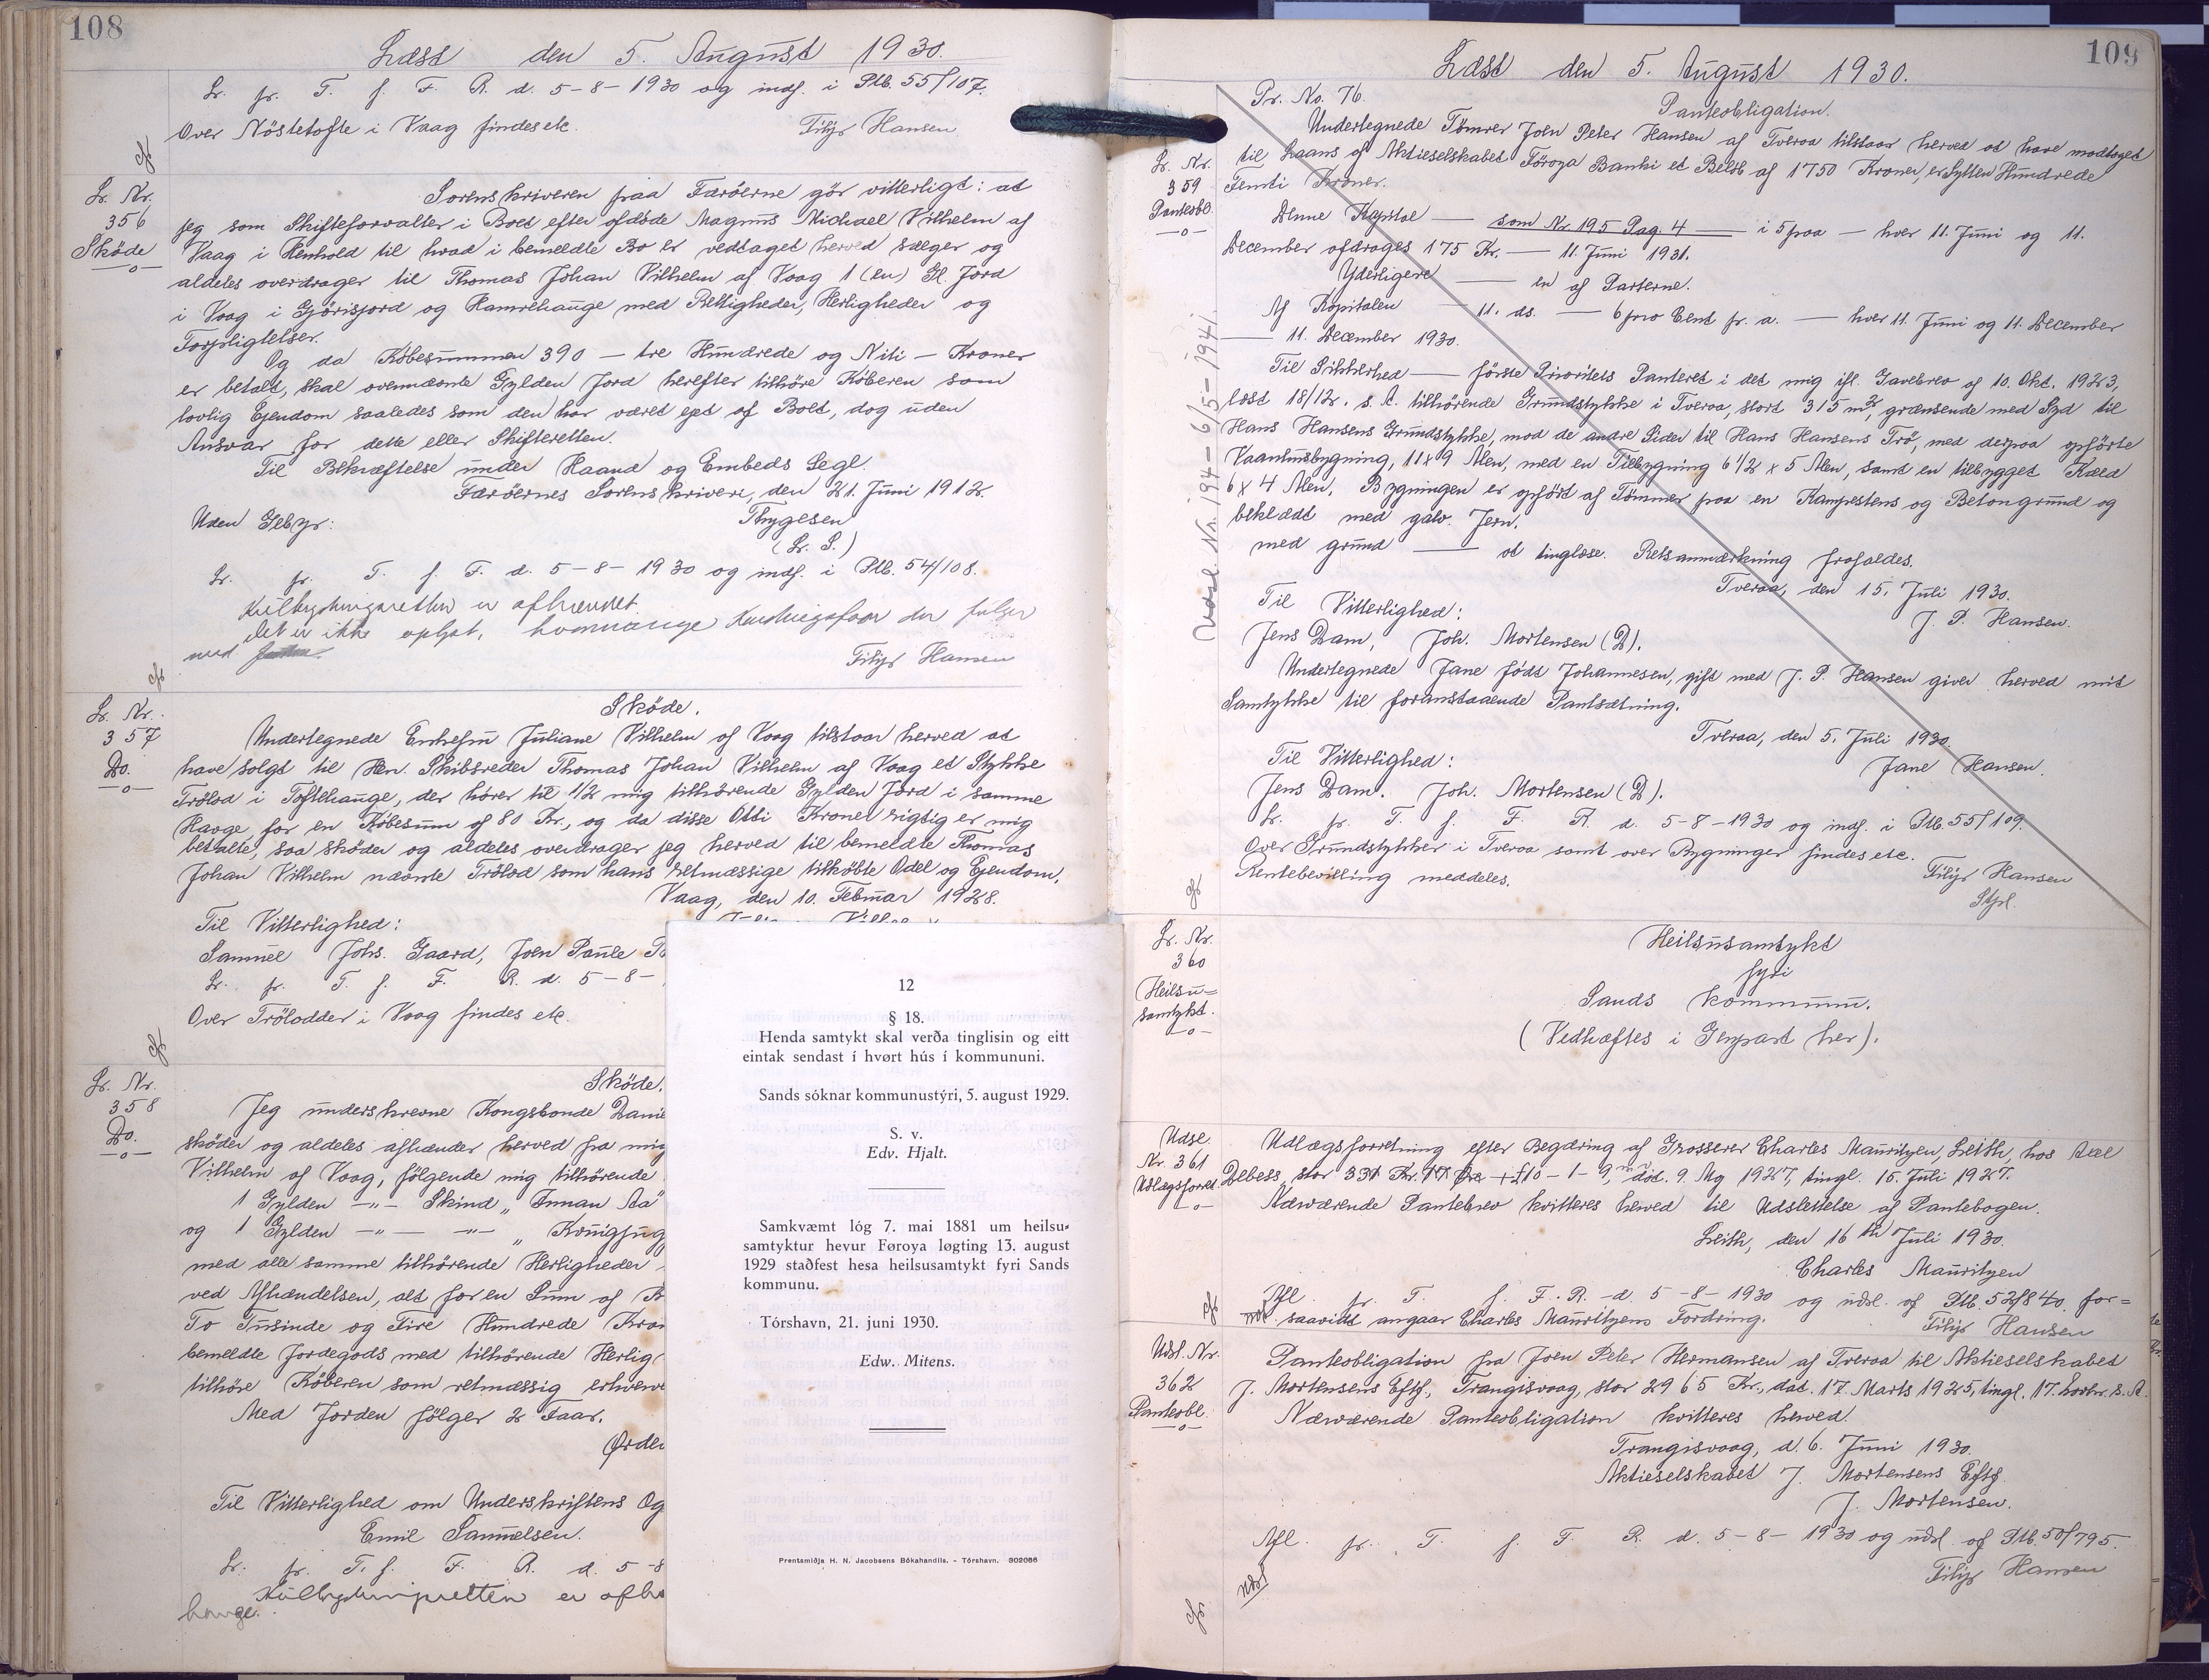 108
Læst den 5. August 1930.
Lr. fr. T. f. F. R. d. 5-8-1930 og indf. i Ptb. 55/107.
Over Nöstetofte i Vaag findes etc.
Filip Hansen
Lr. Nr. 356 Sköde
Sorenskriveren paa Færöerne gör vitterligt: at
jeg som Skifteforvalter i Boet efter afdöde Magnus Michael Vilhelm af
Vaag i Henhold til hvad i bemeldte Bo er vedtaget herved sælger og
aldeles overdrager til Thomas Johan Vilhelm af Vaag 1 (en) Gl. Jord
i Vaag i Gjörisjord og Hamrehauge med Rettigheder, Herligheder og
Forpligtelser.
Og da Köbesummen 390 — tre Hundrede og Niti — Kroner
er betalt, skal ovennævnte Gylden Jord herefter tilhöre Köberen som
lovlig Ejendom saaledes som den har været ejet af Boet, dog uden
Ansvar for dette eller Skifteretten.
Til Bekræftelse under Haand og Embeds Segl.
Færöernes Sorenskriveri, den 21. Juni 1912.
Uden Gebyr:
Thygesen
(L. S.)
Lr. fr. T. f. F. d. 5-8-1930 og indf. i Ptb. 54/108.
er afhændet.
Det er ikke oplyst, hvormange der følger
med
Filip Hansen
Lr. Nr. 357 Do.
Sköde.
Undertegnede Enkefru Juliane Vilhelm af Vaag tilstaar herved at
have solgt til Hr. Skibsreder Thomas Johan Vilhelm af Vaag et Stykke
Trölod i Toftehauge, der hörer til 1/2 mig tilhörende Gylden Jord i samme
Hauge, for en Köbesum af 80 Kr., og da disse Otti Kroner rigtig er mig
betalte, saa sköder og aldeles overdrager jeg herved til bemeldte Thomas
Johan Vilhelm nævnte Trölod som hans retmæssige tilköbte Odel og Ejendom.
Vaag, den 10. Februar 1928.
Til Vitterlighed:
Samuel Johs. Gaard, Joen Paule
Lr. fr. T. f. F. R. d. 5-8-
Over Trölodder i Vaag findes etc.
Lr. Nr. 358 Do.
Sköde.
Jeg underskrevne Kongsbonde
sköder og aldeles afhænder herved fra mig
Vilhelm af Vaag, fölgende mig tilhörende
1 Gylden -"- Skind „ Innan Aa"
og 1 Gylden -"- -"- „
med alle samme tilhörende Herligheder
ved Afhændelsen, alt for en Sum af
To Tusinde og Fire Hundrede
bemeldte Jordegods med tilhörende
tilhöre Köberen som retmæssig
Med Jorden fölger 2 Faar.
Til Vitterlighed om Underskriftens
Emil Samuelsen.
Lr. fr. T. f. F. R. d. 5-8
er
hauge.
12
§ 18.
Henda samtykt skal verða tinglisin og eitt
eintak sendast í hvørt hús í kommununi.
Sands sóknar kommunustýri, 5. august 1929.
S. v.
Edv. Hjalt.
Samkvæmt lóg 7. mai 1881 um heilsu-
samtyktur hevur Føroya løgting 13. august
1929 staðfest hesa heilsusamtykt fyri Sands
kommunu.
Tórshavn, 21. juni 1930.
Edw. Mitens.
Prentsmiðja H. N. Jacobsens Bókahandils. - Tórshavn. 302086
109
Læst den 5. August 1930.
Pr. No. 76.
Panteobligation.
Lr. Nr. 359 Panteobl.
Undertegnede Tömrer Joen Peter Hansen af Tveraa tilstaar herved at have modtaget
til Laans af Aktieselskabet Föroya Banki et Belöb af 1750 Kroner, er Sytten Hundrede
Femti Kroner.
Denne Kapital — som Nr 195 Pag. 4 — i 5 paa — hver 11. Juni og 11.
December afdrages 175 Kr. — 11. Juni 1931.
Yderligere — en af Parterne.
Af Kapitalen — 11. ds. — 6 pro Cent pr. a. — hver 11. Juni og 11. December
— 11. December 1930.
Til Sikkerhed — förste Prioritets Panteret i det mig ifl. Gavebrev af 10. Okt. 1923,
læst 18/12. s. A. tilhörende Grundstykke i Tveraa, stort 315 m², grænsende med Syd til
Hans Hansens Grundstykke, mod de andre Sider til Hans Hansens Trö, med derpaa opförte
Vaaningsbygning, 11x9 Alen, med en Tilbygning 6 1/2 x 5 Alen, samt en tilbygget
6 x 4 Alen. Bygningen er opfört af Tömmer paa en Kampestens og Betongrund og
beklædt med galv. Jern.
med grund — at tinglæse. Retsanmærkning frafaldes.
Tveraa, den 15. Juli 1930.
J. P. Hansen.
Til Vitterlighed:
Jens Dam, Joh. Mortensen (D).
Undertegnede Jane födt Johannesen, gift med J. P. Hansen giver herved mit
Samtykke til foranstaaende Pantsætning.
Tveraa, den 5. Juli 1930.
Jane Hansen.
Til Vitterlighed:
Jens Dam. Joh. Mortensen (D).
Lr. fr. T. f. F. R. d. 5-8-1930 og indf. i Ptb. 55/109.
Over Grundstykker i Tveraa samt over Bygninger findes etc.
Rentebevilling meddeles.
Filip Hansen
Udsl. Nr. 194 - 6/5 - 1941.
Lr. Nr. 360 Heilsu=samtykt.
Heilsusamtykt
fyri
Sands kommunu.
(Vedhæftes i Genpart her).
Udsl. Nr. 361 Udlægsforret.
Udlægsforretning efter Begæring af Grosserer Charles Mauritzen, Leith, hos
stor 331 Kr. 17 Øre + £10-1-9, dat. 9. 1927, tingl. 15. Juli 1927.
Nærværende Pantebrev kvitteres herved til Udslettelse af Pantebogen.
Leith, den 16th Juli 1930.
Charles Mauritzen
Afl. fr. T. f. F. R. d. 5-8-1930 og udsl. af Ptb. 52/840, for=
saavidt angaar Charles Mauritzens Fordring.
Filip Hansen
Udsl. Nr. 362 Panteobl.
Panteobligation fra Joen Peter Hermansen af Tveraa til Aktieselskabet
J. Mortensens Eftf., Trangisvaag, stor 2965 Kr., dat. 17. Marts 1925, tingl. 17. s. A.
Nærværende Panteobligation kvitteres herved.
Trangisvaag, d. 6. Juni 1930.
Aktieselskabet J. Mortensens Eftf.
J. Mortensen.
Afl. fr. T. f. F. R. d. 5-8-1930 og udsl. af Ptb. 50/795.
Filip Hansen
Udsl